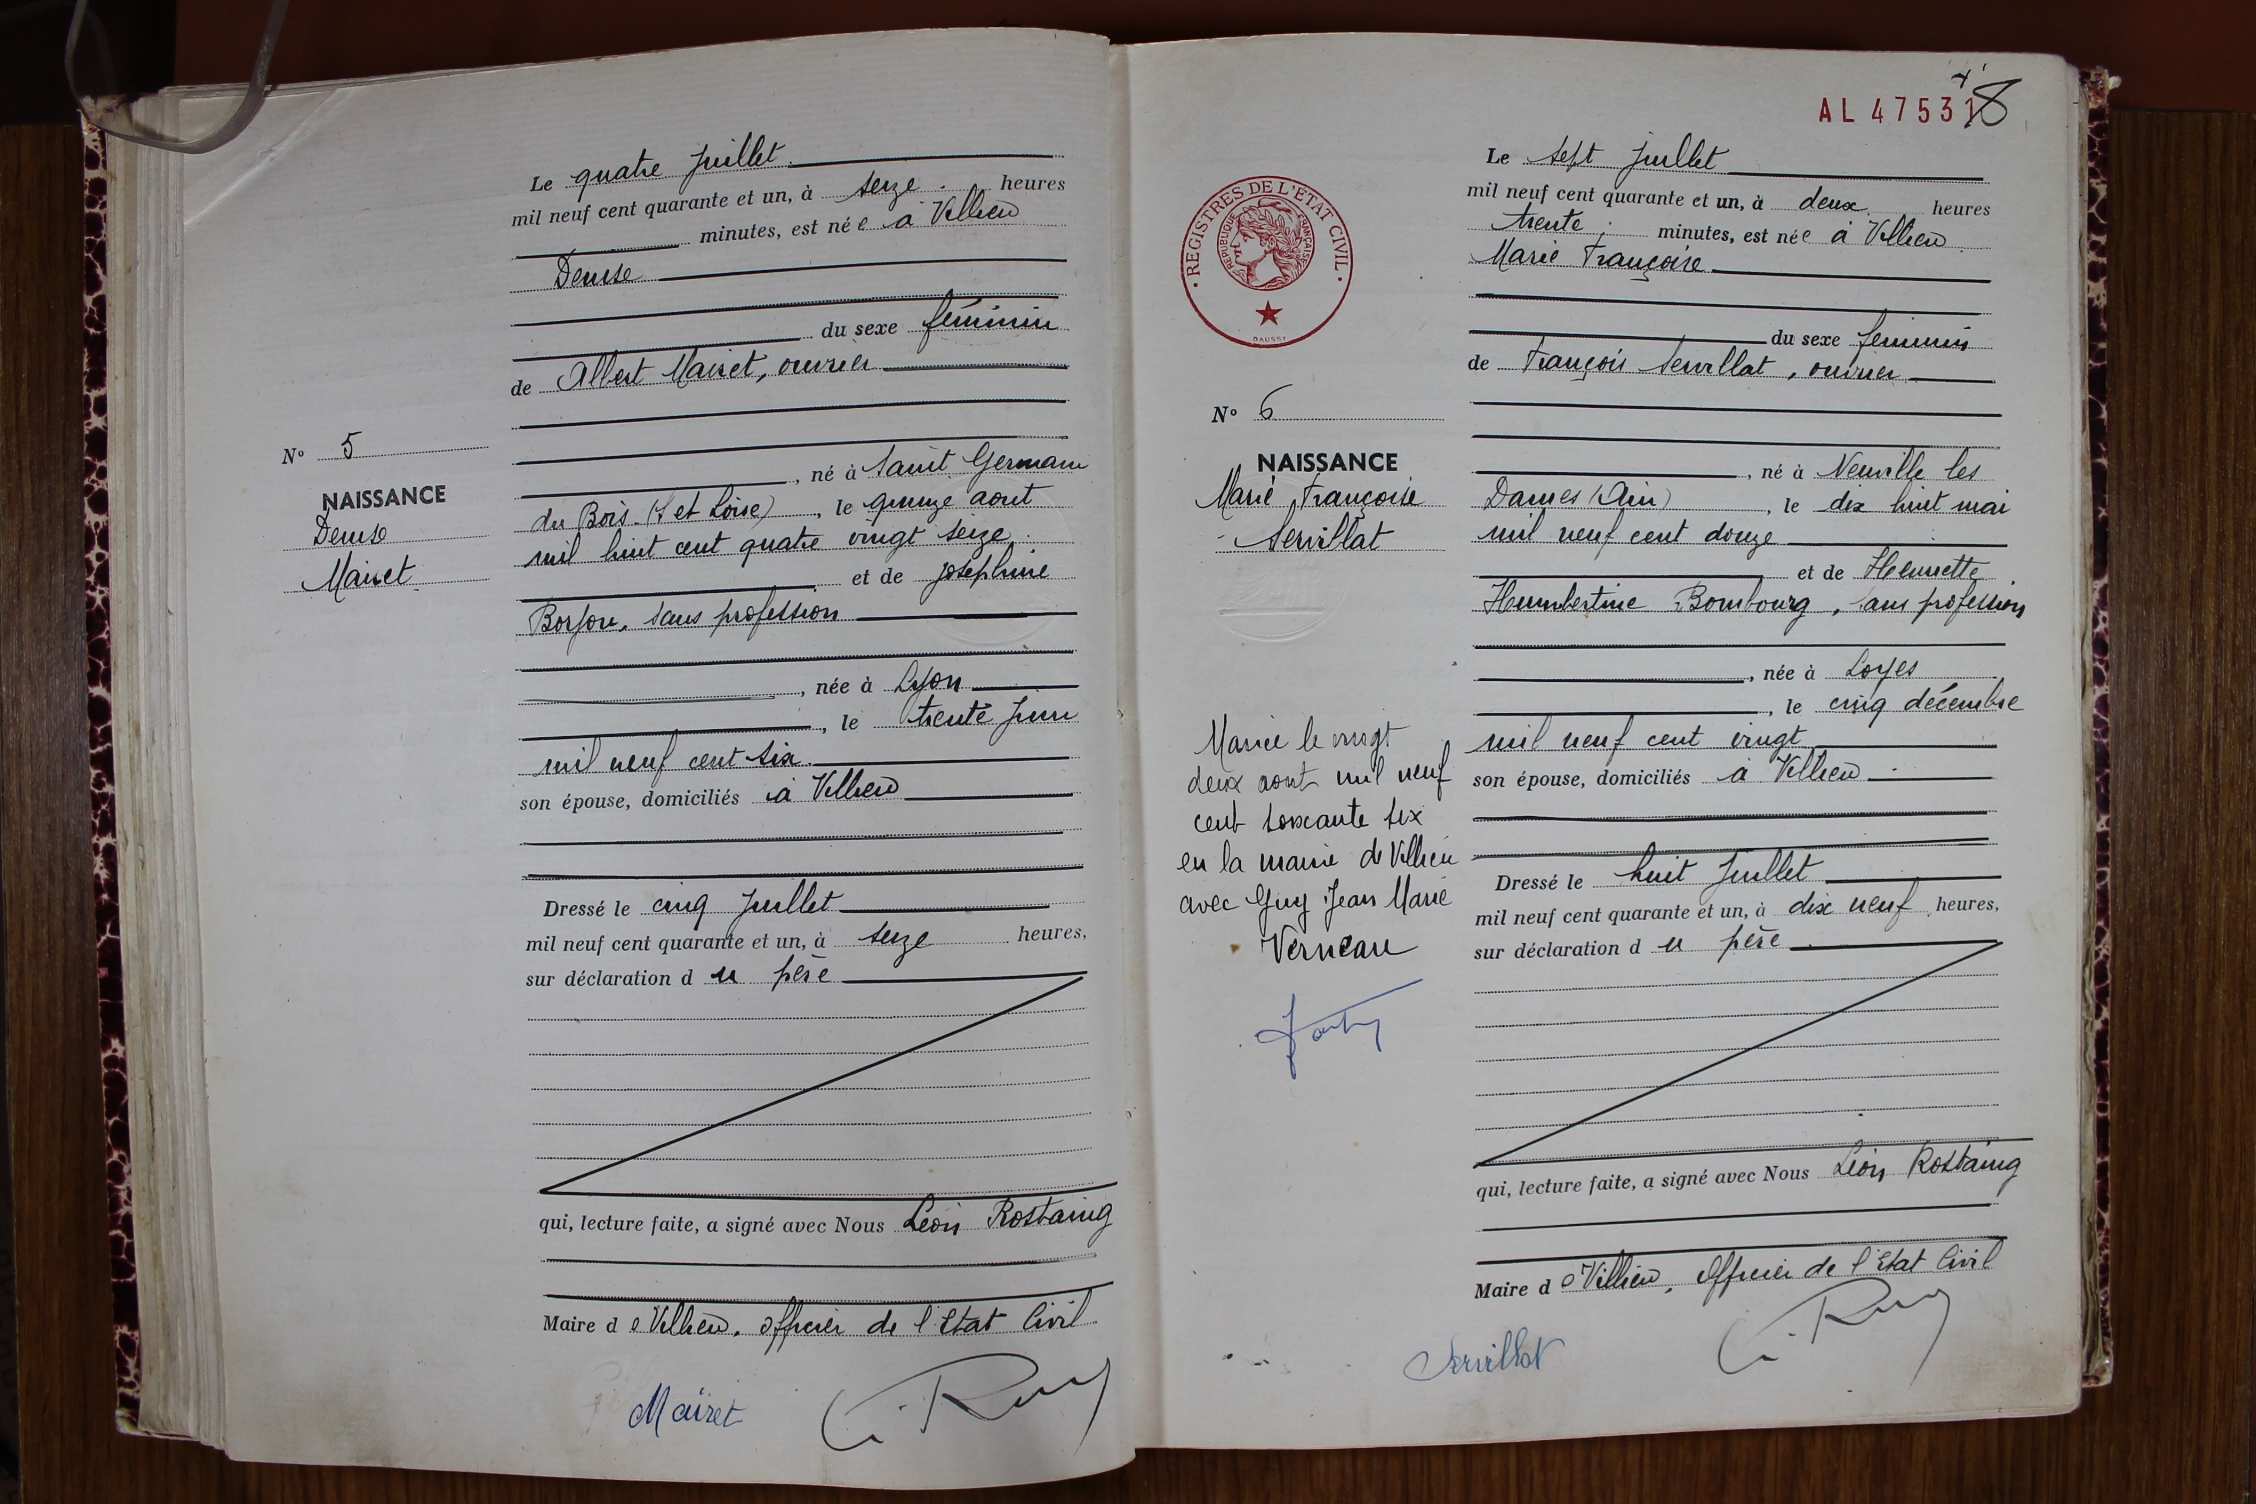 Le quatre juillet
mil neuf cent quarante et un, à seize heures
minutes, est née à Villieu
Denise
du sexe féminin
de Albert Mairet, ouvrier
né à Saint Germain
du Bois (S et Loire), le quinze aout
mil huit cent quatre vingt seize
et de Joséphine
Borjon, sans profession
, née à Lyon
, le trente juin
mil neuf cent six
son épouse, domiciliés à Villieu
Dressé le cinq juillet
mil neuf cent quarante et un, à seize heures,
sur déclaration du père
qui, lecture faite, a signé avec Nous Léon Rostaing
Maire de Villieu, officier de l'Etat Civil
Mairet
N° 5
NAISSANCE
Denise
Mairet
AL 4753
8
REGISTRES DE L'ÉTAT CIVIL
RÉPUBLIQUE FRANÇAISE
DAUSSY
N° 6
NAISSANCE
Marie Françoise
Servillat
Mariée le vingt
deux aout mil neuf
cent soixante six
en la mairie de Villieu
avec Guy Jean Marie
Verneau
Le sept juillet
mil neuf cent quarante et un, à deux heures
trente minutes, est née à Villieu
Marie Françoise
du sexe féminin
de François Servillat, ouvrier
, né à Neuville les
Dames (Ain), le dix huit mai
mil neuf cent douze
et de Henriette
Humbertine Bombourg, sans profession
, née à Loyes
, le cinq décembre
mil neuf cent vingt
son épouse, domiciliés à Villieu
Dressé le huit juillet
mil neuf cent quarante et un, à dix neuf heures,
sur déclaration du père
qui, lecture faite, a signé avec Nous Léon Rostaing
Maire de Villieu, Officier de l'Etat Civil
Servillat